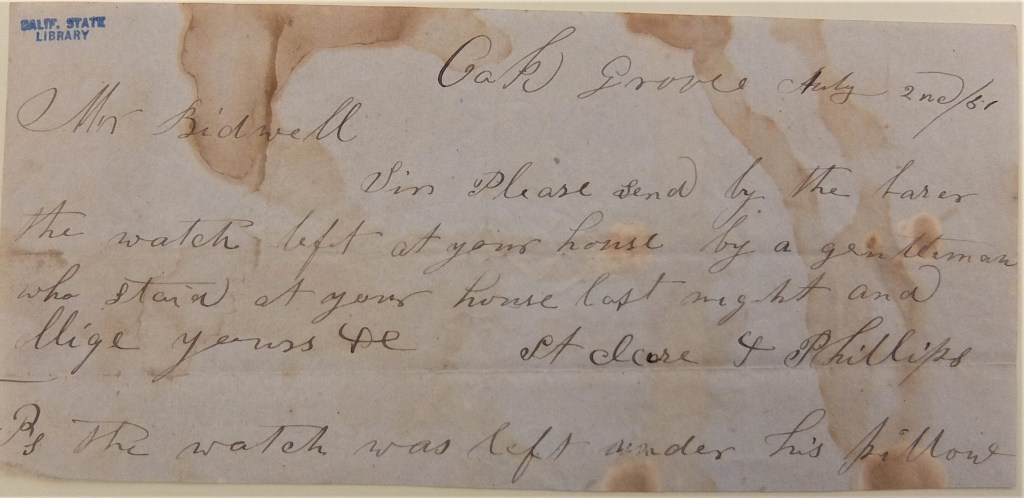 CALIF. STATE
LIBRARY
Oak Grove July 2nd/51
Mr Bidwell
Sir Please send by the barer
the watch left at your house by a gentleman
who staid at your house last night and
ollige yours &c St Clare & Phillips
Ps the watch was left under his pillow